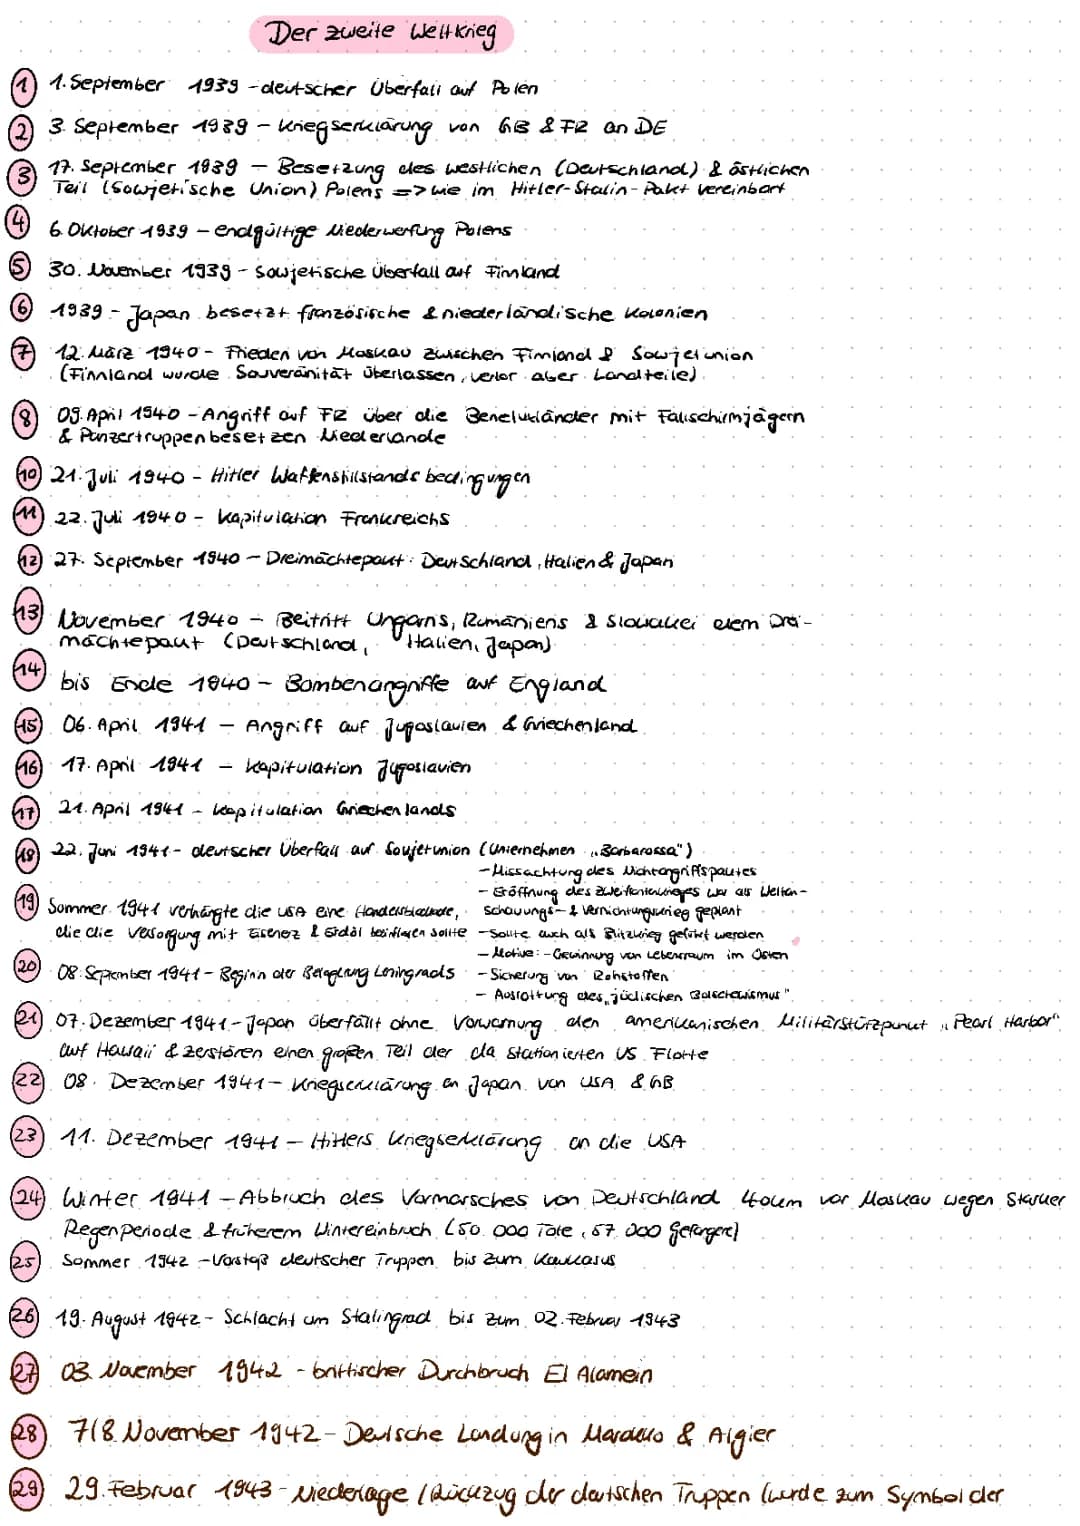 Der zweite Weltkrieg
1 1. September 1939 - deutscher Überfall auf Polen
2 3. September 1939 - Kriegserklärung von GB & FR an DE
3 17. September 1939 - Besetzung des westlichen (Deutschland) & östlichen
Teil (Sowjetische Union) Polens => wie im Hitler-Stalin-Pakt vereinbart
4 6. Oktober 1939 - endgültige Niederwerfung Polens
5 30. November 1939 - sowjetische Überfall auf Finnland
6 1939 - Japan besetzt französische & niederländische Kolonien
7 12. März 1940 - Frieden von Moskau zwischen Finnland & Sowjetunion
(Finnland wurde Souveränität überlassen, verlor aber Landteile)
8 09. April 1940 - Angriff auf FR über die Beneluxländer mit Fallschirmjägern
& Panzertruppen besetzen Niederlande
10 21. Juli 1940 - Hitler Waffenstillstands bedingungen
11 22. Juli 1940 - Kapitulation Frankreichs
12 27. September 1940 - Dreimächtepakt: Deutschland, Italien & Japan
13 November 1940 - Beitritt Ungarns, Rumäniens & Slowakei dem Drei-
mächtepakt (Deutschland, Italien, Japan)
14 bis Ende 1940 - Bombenangriffe auf England
15 06. April 1941 - Angriff auf Jugoslavien & Griechenland
16 17. April 1941 - Kapitulation Jugoslavien
17 21. April 1941 - Kapitulation Griechenlands
18 22. Juni 1941 - deutscher Überfall auf Sowjetunion (Unternehmen „Barbarossa")
- Missachtung des Nichtangriffspaktes
- Eröffnung des Zweifrontenkrieges war als Weltan-
schauungs- & Vernichtungskrieg geplant
- Sollte auch als Blitzkrieg geführt werden
- Motive: - Gewinnung von Lebensraum im Osten
- Sicherung von Rohstoffen
- Ausrottung des „jüdischen Bolschewismus"
19 Sommer 1941 verhängte die USA eine Handelsblockade,
die die Versorgung mit Eisenerz & Erdöl beinflugen sollte
20 08. September 1941 - Beginn der Belagerung Leningrads
21 07. Dezember 1941 - Japan überfällt ohne Vorwarnung den amerikanischen Militärstützpunkt „Pearl Harbor"
auf Hawaii & zerstören einen großen Teil der da stationierten US Flotte
22 08. Dezember 1941 - Kriegserklärung an Japan von USA & GB
23 11. Dezember 1941 - Hitlers Kriegserklärung an die USA
24 Winter 1941 - Abbruch des Vormarsches von Deutschland 40km vor Moskau wegen starker
Regenperiode & früherem Wintereinbruch (50.000 Tote, 57.000 Gefangene)
25 Sommer 1942 - Vorstoß deutscher Truppen bis zum Kaukasus
26 19. August 1942 - Schlacht um Stalingrad bis zum 02. Februar 1943
27 03. November 1942 - brittischer Durchbruch El Alamein
28 7/8. November 1942 - Deutsche Landung in Marokko & Algier
29 29. Februar 1943 - Niederlage / Rückzug der deutschen Truppen (wurde zum Symbol der